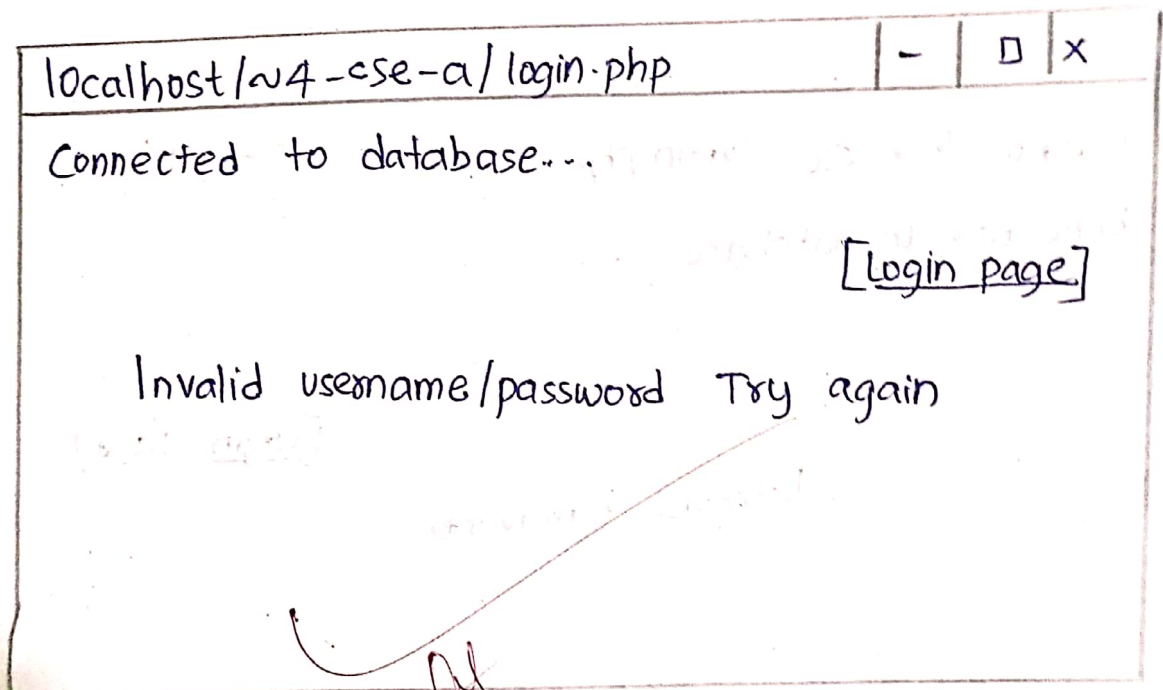 localhost/~4-cse-a/login.php - □ x
Connected to database....
[Login page]
Invalid username/password Try again